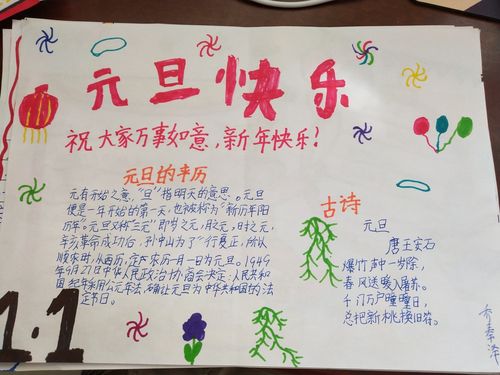 元旦快乐
祝大家万事如意，新年快乐！
元旦的来历
元有开始之意，"旦"指明天的意思。元旦
便是一年开始的第一天，也被称为"新历年阳
历年"。元旦又称"三元"即岁之元，月之元，时之元，
辛亥革命成功后，孙中山为了"行夏正，所以
顺农时，从西历，定农历一月一日为元旦。1949
年9月27日中华人民政治协商会决定：人民共和
国纪年采用公元年法，确让元旦为中华共和国的法
定节日。
古诗
元旦
唐王安石
爆竹声中一岁除，
春风送暖入屠苏。
千门万户曈曈日，
总把新桃换旧符。
1.1